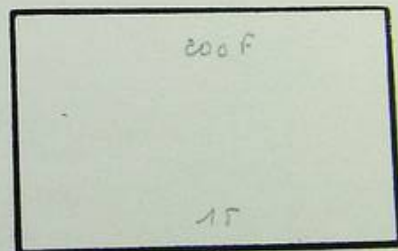 200 F
15